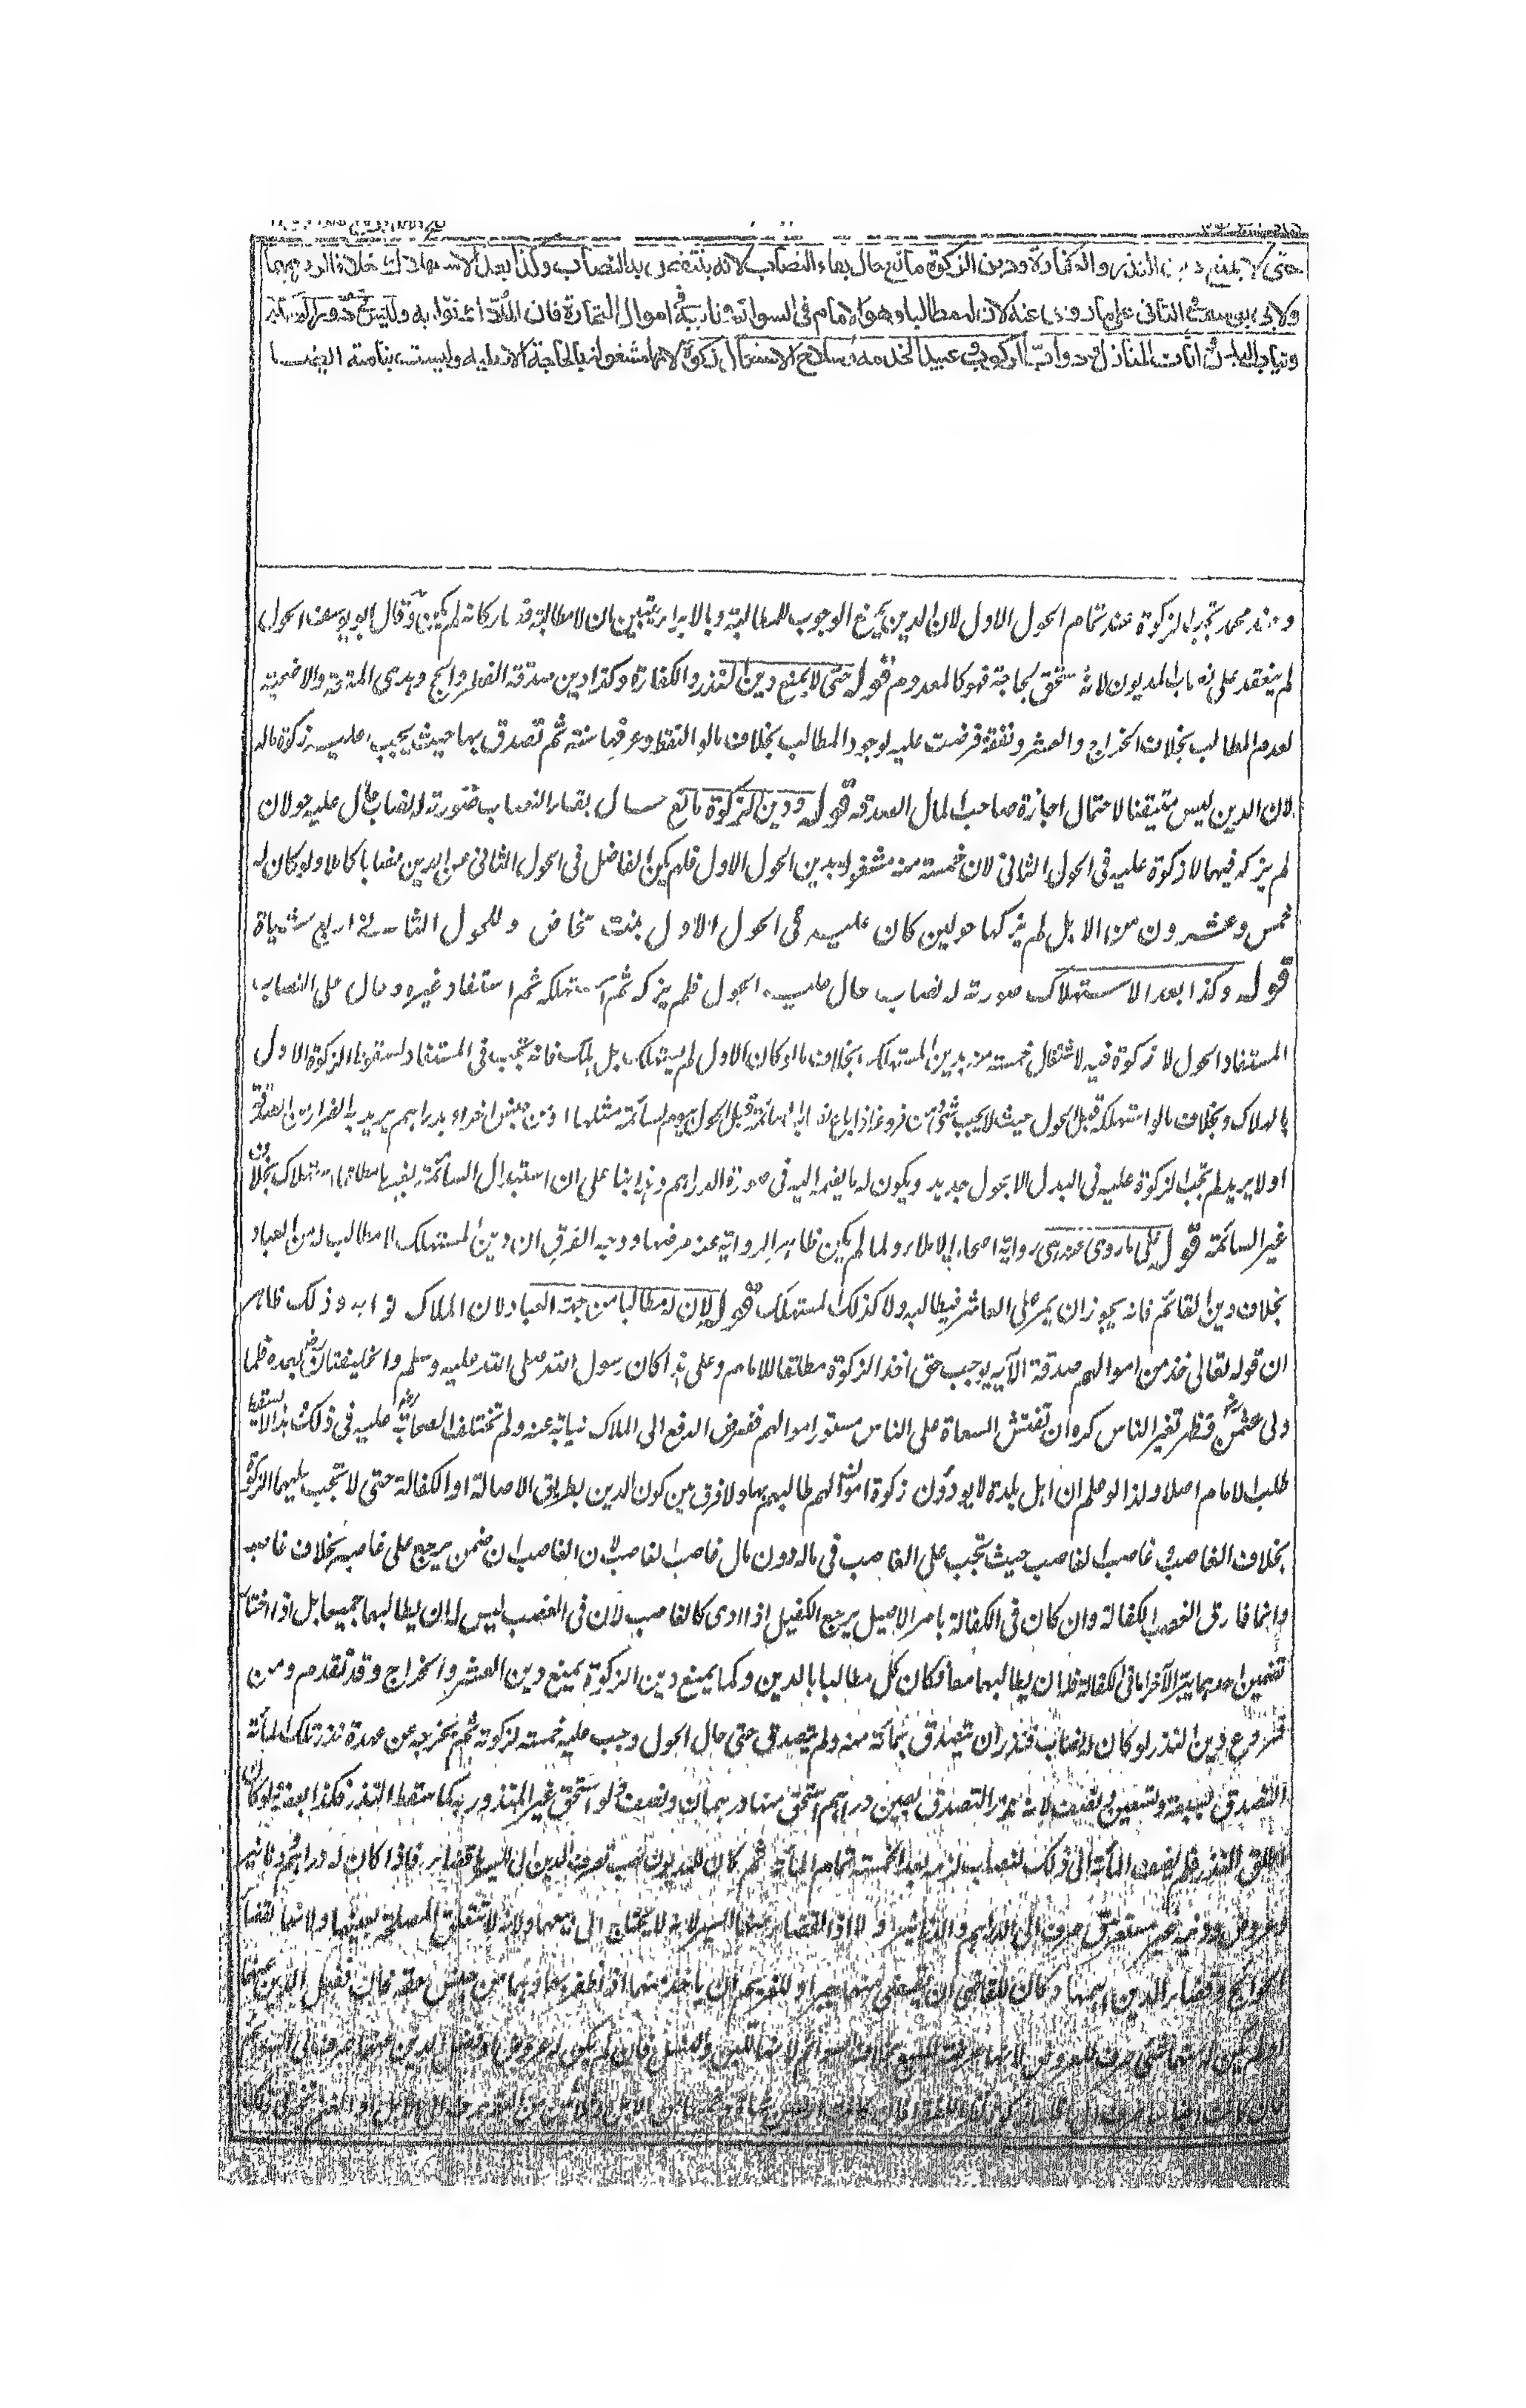 حتى لا يمنع دين النذر والكفارة ودين الزكوة مانع حال بقاء النصاب لانه ينتقص به النصاب وكذا بعد الاستهلاك خلافا لزفر فيهما
ولابى يوسف فى الثانى على ما روى عنه لان له مطالبا وهو الامام فى السوائم ونائبه فى اموال التجارة فان الملاك نوابه وليس فى دور السكنى
وثياب البدن واثاث المنازل ودواب الركوب وعبيد الخدمة وسلاح الاستعمال زكوة لانها مشغولة بالحاجة الاصلية وليست بنامية ايضا
وعند محمد تجب الزكوة عند تمام الحول الاول لان الدين يمنع الوجوب للمطالبة وبالابراء يتبين ان لا مطالبة فصار كانه لم يكن وقال ابو يوسف الحول
لم ينعقد على نصاب المديون لانه مستحق لحاجته فهو كالمعدوم قوله حتى لا يمنع دين النذر والكفارة وكذا دين صدقة الفطر والحج وهدى المتعة والاضحية
لعدم المطالب بخلاف الخراج والعشر ونفقة فرضت عليه لوجود المطالب بخلاف ما لو التقط وعرفها سنة ثم تصدق بها حيث يجب عليه زكوة ماله
لان الدين ليس متيقنا لاحتمال اجازة صاحب المال الصدقة قوله ودين الزكوة مانع حال بقاء النصاب صورته له نصاب حال عليه حولان
لم يزكه فيهما لا زكوة عليه فى الحول الثانى لان خمسة منه مشغولة بدين الحول الاول فلم يكن الفاضل فى الحول الثانى عن الدين نصابا كاملا ولو كان له
خمس وعشرون من الابل لم يزكها حولين كان عليه فى الحول الاول بنت مخاض وللحول الثانى اربع شياة
قوله وكذا بعد الاستهلاك صورته له نصاب حال عليه الحول فلم يزكه ثم استهلكه ثم استفاد غيره وحال على النصاب
المستفاد الحول لا زكوة فيه لاشتغال خمسة منه بدين المستهلك بخلاف ما لو كان الاول لم يستهلك بل هلك فانه تجب فى المستفاد لسقوط الزكوة الاول
بالهلاك وبخلاف ما لو استهلكه قبل الحول حيث لا يجب شئ ومن فروعه اذا باع نصاب السائمة قبل الحول بيوم لسائمة مثلها او من جنس اخر او بدراهم يريد به الفرار من الصدقة
او لا يريد لم تجب الزكوة عليه فى البدل الا بحول جديد ويكون له ما يضمه اليه فى صورة الدراهم وهذا بناء على ان استبدال السائمة بغيرها مطلقا استهلاك بخلاف
غير السائمة قوله على ما روى عنه هى رواية اصحاب الاملاء ولما لم يكن ظاهر الرواية عنه مرضها ووجه الفرق ان دين المستهلك لا مطالب له من العباد
بخلاف دين القائم فانه يجوز ان يمر على العاشر فيطالبه ولا كذلك المستهلك قوله لان له مطالبا من جهة العباد لان الملاك نوابه وذلك ظاهر
ان قوله تعالى خذ من اموالهم صدقة الآية يوجب حق اخذ الزكوة مطلقا للامام وعلى هذا كان رسول الله صلى الله عليه وسلم والخليفتان بعده فلما
ولى عثمن فظهر تغير الناس كره ان تفتش السعاة على الناس مستور اموالهم ففوض الدفع الى الملاك نيابة عنه ولم تختلف الصحابة عليه فى ذلك وهذا لا يسقط
طلب الامام اصلا ولذا لو علم ان اهل بلدة لا يودون زكوة اموالهم طالبهم بها ولا فرق بين كون الدين بطريق الاصالة او الكفالة حتى لا تجب عليهما الزكوة
بخلاف الغاصب وغاصب الغاصب حيث تجب على الغاصب فى ماله دون مال غاصب الغاصب لان الغاصب ان ضمن يرجع على غاصبه بخلاف غاصبه
وانما فارق الغصب الكفالة وان كان فى الكفالة بامر الاصيل يرجع الكفيل اذا ادى كالغاصب لان فى الغصب ليس له ان يطالبهما جميعا بل اذا اختار
تضمين احدهما يبرأ الآخر اما فى الكفالة فله ان يطالبهما معا فكان كل مطالبا بالدين وكما يمنع دين الزكوة يمنع دين العشر والخراج وقد تقدم ومن
فروع دين النذر لو كان له نصاب فنذر ان يتصدق بمائة منه ولم يتصدق حتى حال الحول وجب عليه خمسة لزكوته ثم يخرجه عن عهدة نذر تلك المائة
التصدق بسبعة وتسعين ونصف لانه نذر التصدق بعين دراهم استحق منها درهمان ونصف ولو استحق غير المنذور به كما سقط النذر فكذا بعضه ولو كان
اطلق النذر فلم يضف المائة الى ذلك النصاب لزمه بعد الخمسة تمام المائة ثم كان للمديون نصب تصرف الدين الى ايسرها قضاء فاذا كان له دراهم ودنانير
وعروض ودينه غير مستغرق صرف الى الدراهم والدنانير اولا اذا القضاء منهما ايسر لانه لا يحتاج الى بيعهما ولانه لا تتعلق المصلحة بعينهما ولانهما لقضاء
الحوائج وقضاء الدين اهمها وكان للقاضى ان يقضى منهما جبرا وللغريم ان ياخذ منهما اذا ظفر بهما وهما من جنس حقه فان فضل الدين عنهما